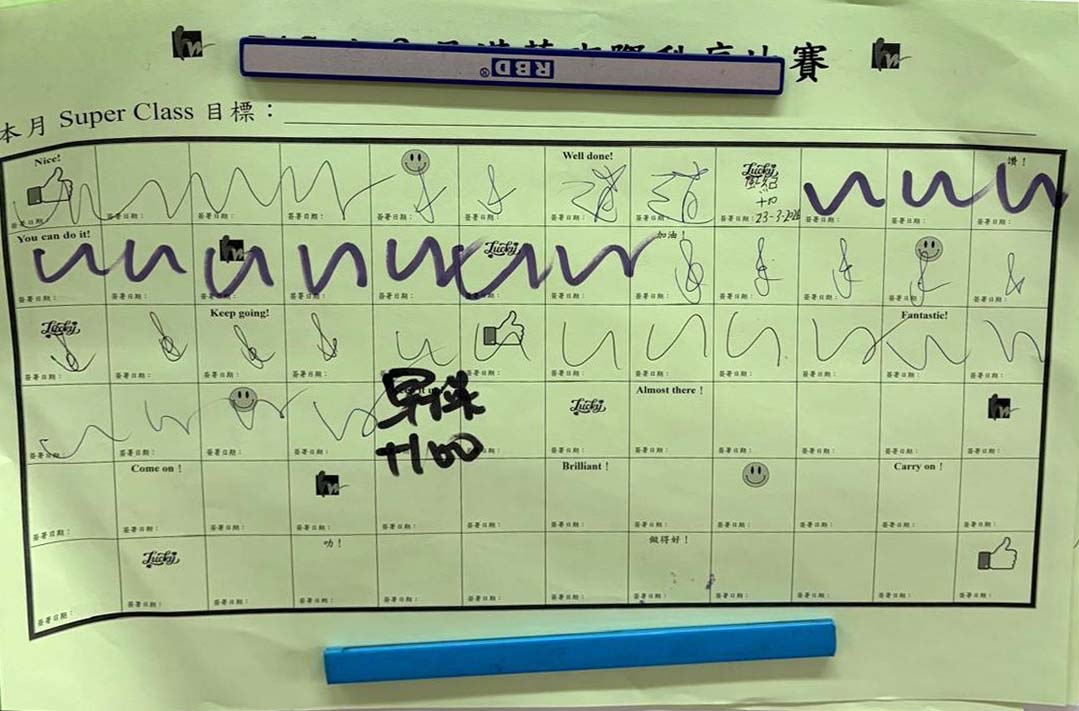 賽
RBD®
本月 Super Class 目標：
Nice! Well done! Lucky 讚！
風紀
+10
23-3-2026
簽署日期： 簽署日期： 簽署日期： 簽署日期： 簽署日期： 簽署日期： 簽署日期： 簽署日期： 簽署日期： 簽署日期： 簽署日期：
You can do it! Lucky 加油！
簽署日期： 簽署日期： 簽署日期： 簽署日期： 簽署日期： 簽署日期： 簽署日期： 簽署日期： 簽署日期： 簽署日期： 簽署日期： 簽署日期：
Lucky Keep going! Fantastic!
簽署日期： 簽署日期： 簽署日期： 簽署日期： 簽署日期： 簽署日期： 簽署日期： 簽署日期： 簽署日期： 簽署日期： 簽署日期：
早操
+100
Lucky Almost there！
簽署日期： 簽署日期： 簽署日期： 簽署日期： 簽署日期： 簽署日期： 簽署日期： 簽署日期： 簽署日期： 簽署日期： 簽署日期：
Come on！ Brilliant！ Carry on！
簽署日期： 簽署日期： 簽署日期： 簽署日期： 簽署日期： 簽署日期： 簽署日期： 簽署日期： 簽署日期： 簽署日期： 簽署日期： 簽署日期：
Lucky 叻！ 做得好！
簽署日期： 簽署日期： 簽署日期： 簽署日期： 簽署日期： 簽署日期： 簽署日期： 簽署日期： 簽署日期： 簽署日期： 簽署日期： 簽署日期：